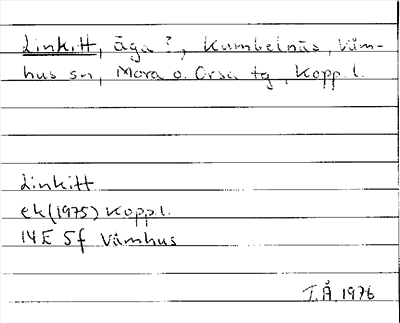 Linkitt, äga ?, Kumbelnäs, Våm-
hus sn, Mora o. Orsa tg, Kopp. l.
Linkitt
ek (1975) Kopp l.
14E 5f Våmhus
T.Å. 1976